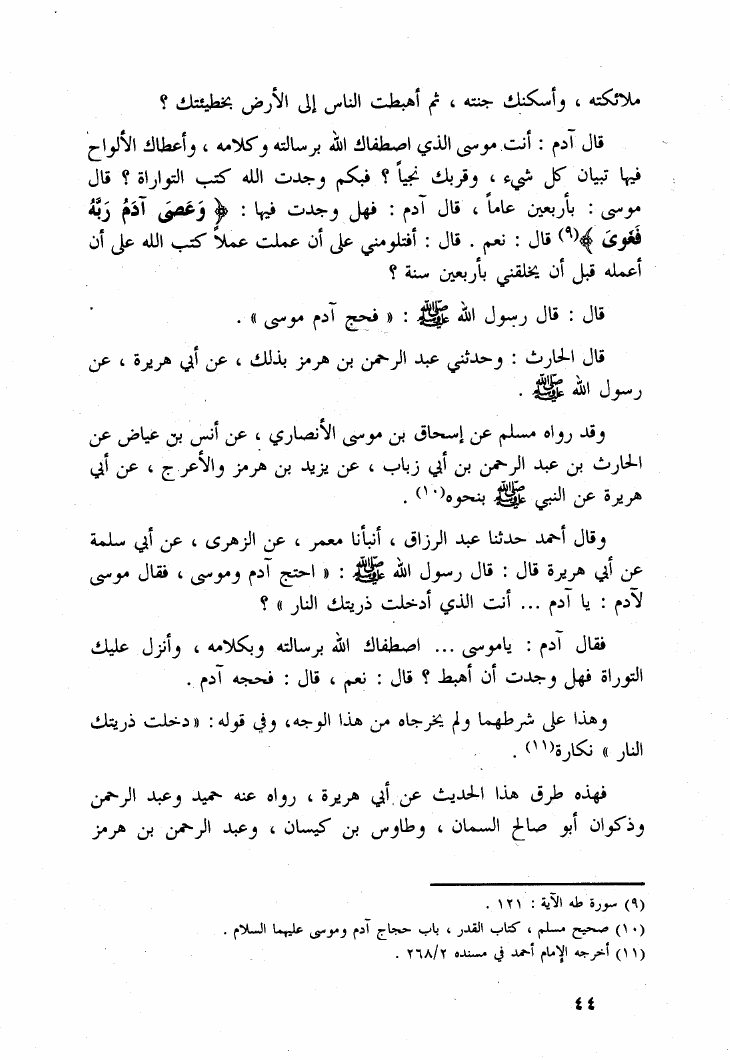 ملائكته ، وأسكنك جنته ، ثم أهبطت الناس إلى الأرض بخطيئتك ؟
قال آدم : أنت موسى الذي اصطفاك الله برسالته وكلامه ، وأعطاك الألواح
فيها تبيان كل شيء ، وقربك نجياً ؟ فبكم وجدت الله كتب التواراة ؟ قال
موسى : بأربعين عاماً ، قال آدم : فهل وجدت فيها : ﴿ وَعَصَى آدَمُ رَبَّهُ
فَغَوىَ ﴾(٩) قال : نعم . قال : أفتلومني على أن عملت عملاً كتب الله على أن
أعمله قبل أن يخلقني بأربعين سنة ؟
قال : قال رسول الله ﷺ : « فحج آدم موسى » .
قال الحارث : وحدثني عبد الرحمن بن هرمز بذلك ، عن أبي هريرة ، عن
رسول الله ﷺ .
وقد رواه مسلم عن إسحاق بن موسى الأنصاري ، عن أنس بن عياض عن
الحارث بن عبد الرحمن بن أبي زباب ، عن يزيد بن هرمز والأعرج ، عن أبي
هريرة عن النبي ﷺ بنحوه(١٠) .
وقال أحمد حدثنا عبد الرزاق ، أنبأنا معمر ، عن الزهرى ، عن أبي سلمة
عن أبي هريرة قال : قال رسول الله ﷺ : « احتج آدم وموسى ، فقال موسى
لآدم : يا آدم ... أنت الذي أدخلت ذريتك النار » ؟
فقال آدم : ياموسى ... اصطفاك الله برسالته وبكلامه ، وأنزل عليك
التوراة فهل وجدت أن أهبط ؟ قال : نعم ، قال : فحجه آدم .
وهذا على شرطهما ولم يخرجاه من هذا الوجه، وفي قوله: «دخلت ذريتك
النار » نكارة(١١) .
فهذه طرق هذا الحديث عن أبي هريرة ، رواه عنه حميد وعبد الرحمن
وذكوان أبو صالح السمان ، وطاوس بن كيسان ، وعبد الرحمن بن هرمز
(٩) سورة طه الآية : ١٢١ .
(١٠) صحيح مسلم ، كتاب القدر ، باب حجاج آدم وموسى عليهما السلام .
(١١) أخرجه الإمام أحمد في مسنده ٢٦٨/٢ .
٤٤